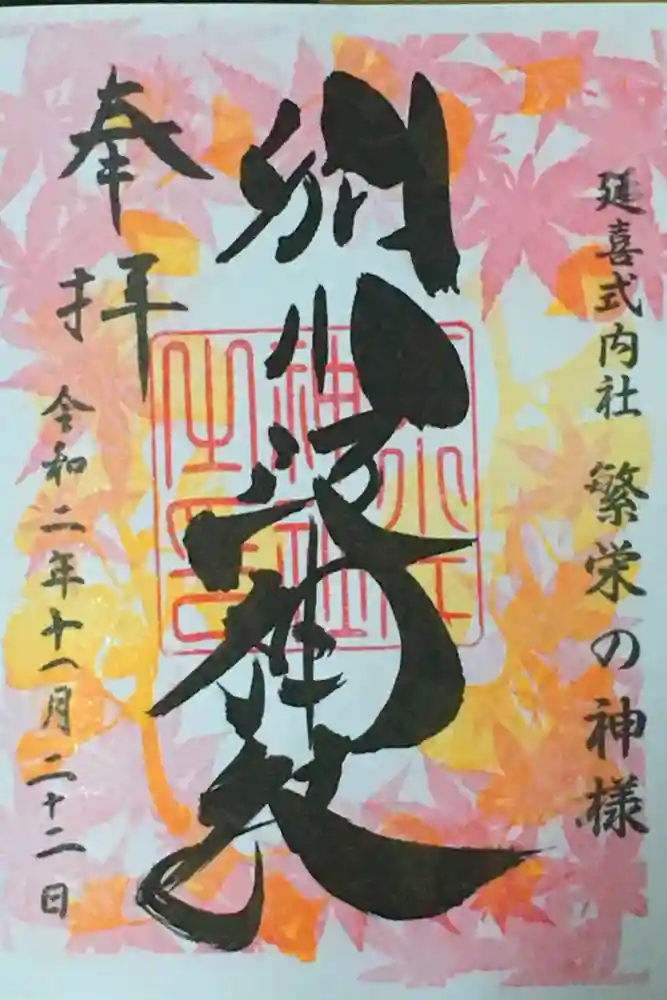 延喜式内社 繁栄の神様
別小江神社
奉拝
令和二年十一月二十二日